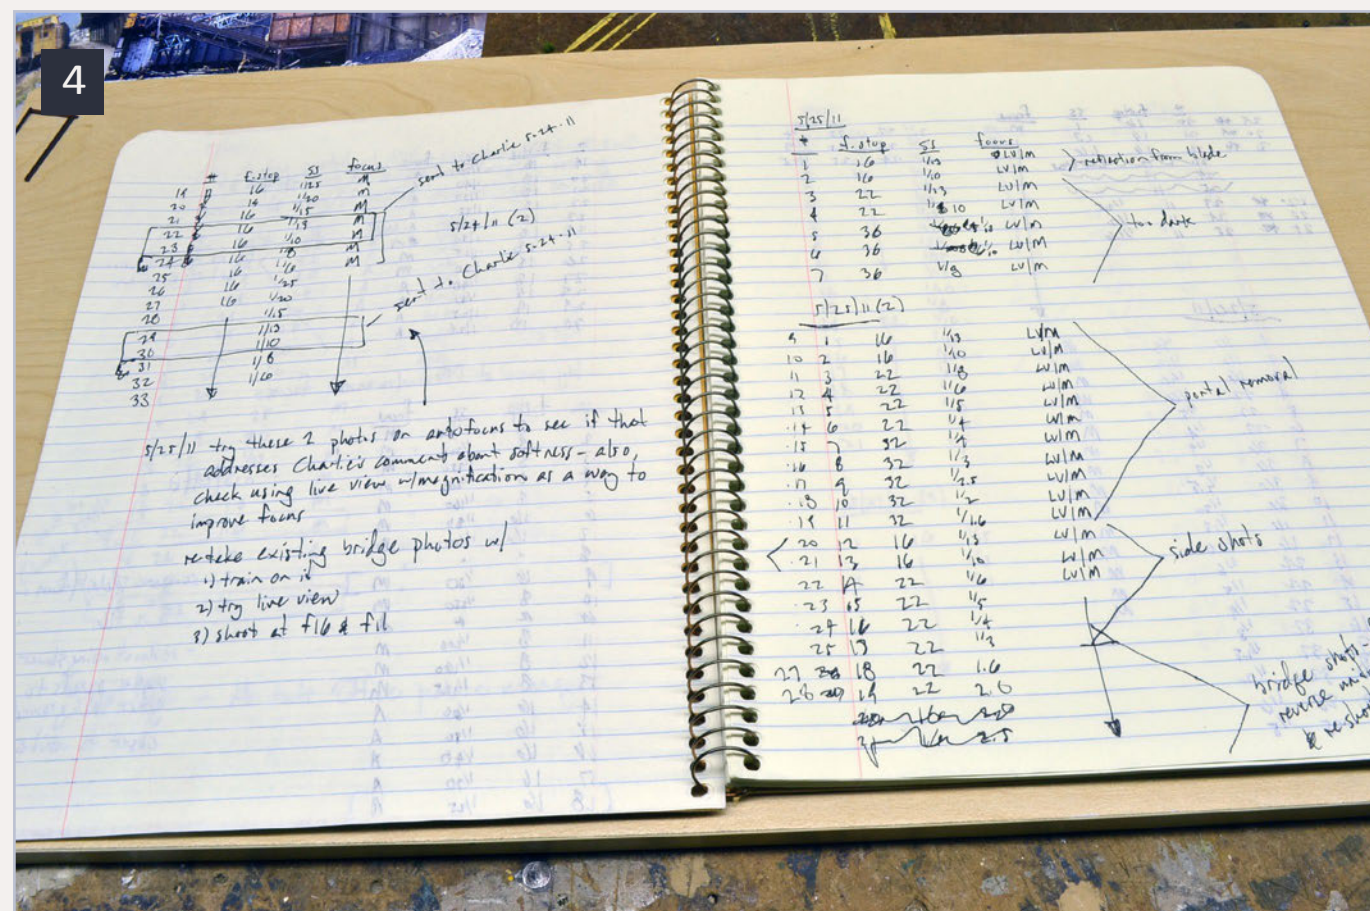 4
# f.stop SS focus
19 16 1/25 M
20 1/20 M
21 16 1/15 M
22 16 1/13 M
23 16 1/10 M
24 16 1/8 M
25 16 1/6 M
26 16 1/25
27 16 1/20
28 1/15
29 1/13
30 1/10
31 1/8
32 1/6
33
sent to Charlie 5-24-11
5/24/11 (2)
sent to Charlie 5-24-11
5/25/11 try these 2 photos on autofocus to see if that
addresses Charlie's comment about softness - also,
check using live view w/magnification as a way to
improve focus
re-take existing bridge photos w/
1) train on it
2) try live view
3) shoot at f16 & f11
5/25/11
# f.stop SS focus
1 16 1/13 LV/M
2 16 1/10 LV/M
3 22 1/13 LV/M
4 22 10 LV/M
5 36 LV/M
6 36 LV/M
7 36 1/8 LV/M
reflection from blade
too dark
5/25/11 (2)
9 1 16 1/13 LV/M
10 2 16 1/10 LV/M
11 3 22 1/8 LV/M
12 4 22 1/6 LV/M
13 5 22 1/5 LV/M
14 6 22 1/4 LV/M
15 7 32 1/4 LV/M
16 8 32 1/3 LV/M
17 9 32 1/2.5 LV/M
18 10 32 1/2 LV/M
19 11 32 1/1.6 LV/M
20 12 16 1/13 LV/M
21 13 16 1/10 LV/M
22 14 22 1/6 LV/M
23 15 22 1/5
24 16 22 1/4
25 22 1/3
27 18 22 1.6
28 19 22 2.0
2.5
portal removal
side shots
bridge shots -
reverse
& re-shoot